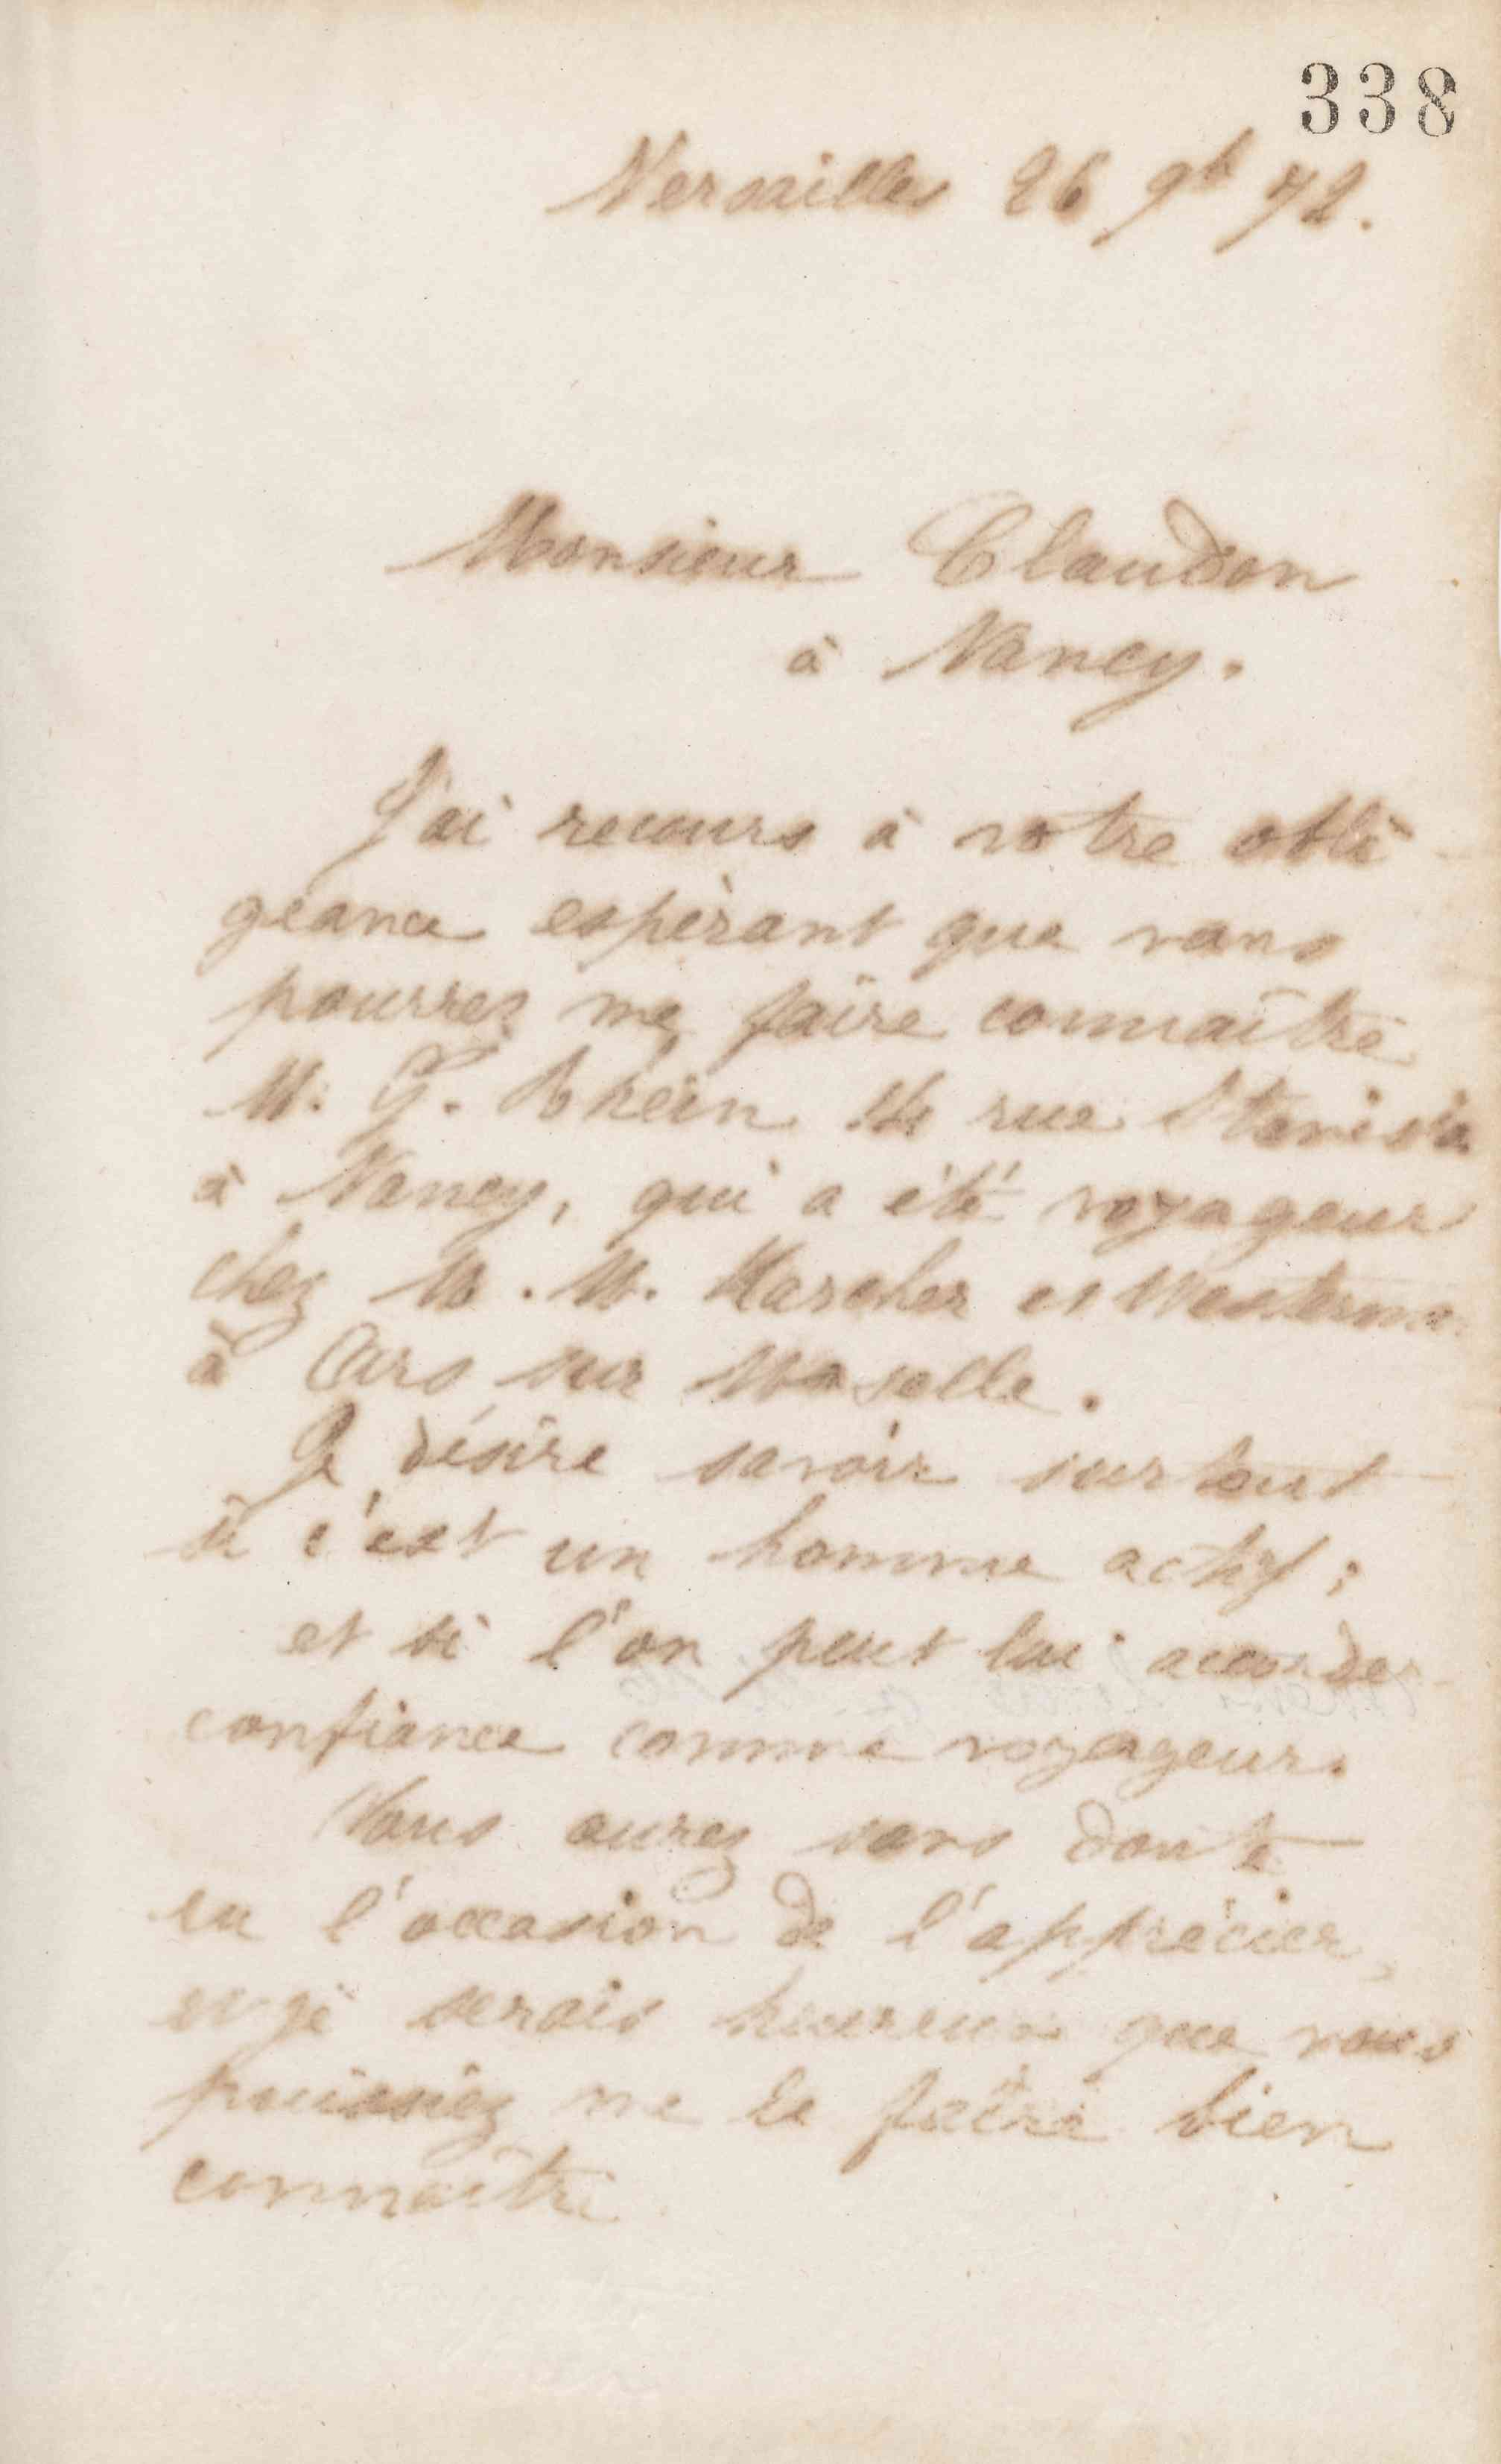 338
Versailles 26 9b 72.
Monsieur Claudon
à Nancy.
J'ai recours à votre obli
geance espérant que vous
pourrez me faire connaître
M. G. Rhein 14 rue Stanisla
à Nancy, qui a été voyageur
chez M. M. Karcher et Westerma
à Ars sur Moselle.
Je désire savoir surtout
si c'est un homme actif;
et si l'on peut lui accorder
confiance comme voyageur.
Vous aurez sans doute
eu l'occasion de l'apprécier,
et je serais heureux que vous
puissiez me le faire bien
connaître